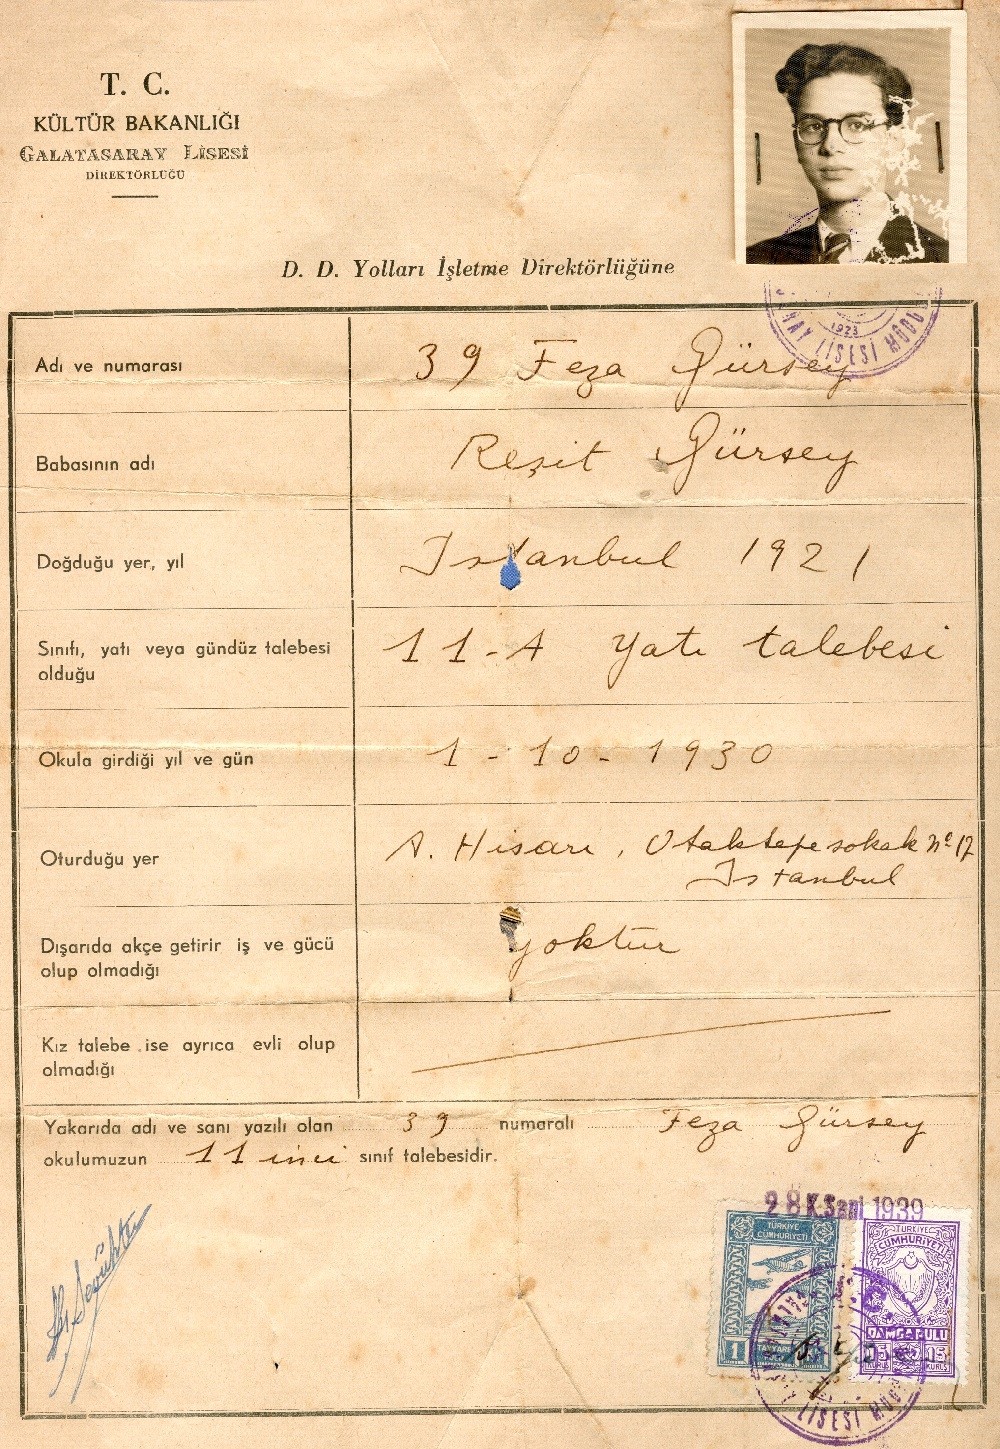 T. C.
KÜLTÜR BAKANLIĞI
GALATASARAY LİSESİ
DİREKTÖRLÜĞÜ
D. D. Yolları İşletme Direktörlüğüne
1923
RAY LİSESİ MÜDÜ
Adı ve numarası 39 Feza Gürsey
Babasının adı Reşit Gürsey
Doğduğu yer, yıl Istanbul 1921
Sınıfı, yatı veya gündüz talebesi olduğu 11-A Yatı talebesi
Okula girdiği yıl ve gün 1-10-1930
Oturduğu yer A. Hisarı, Otaktepe sokak No 12
Istanbul
Dışarıda akçe getirir iş ve gücü
olup olmadığı yoktur
Kız talebe ise ayrıca evli olup
olmadığı
Yakarıda adı ve sanı yazılı olan 39 numaralı Feza Gürsey
okulumuzun 11 inci sınıf talebesidir.
28 K.Sani 1939
TÜRKİYE
CÜMHURİYETİ
1
TÜRKİYE
CÜMHURİYETİ
DAMGA PULU
15 15
KURUŞ KURUŞ
LİSESİ MÜDÜ